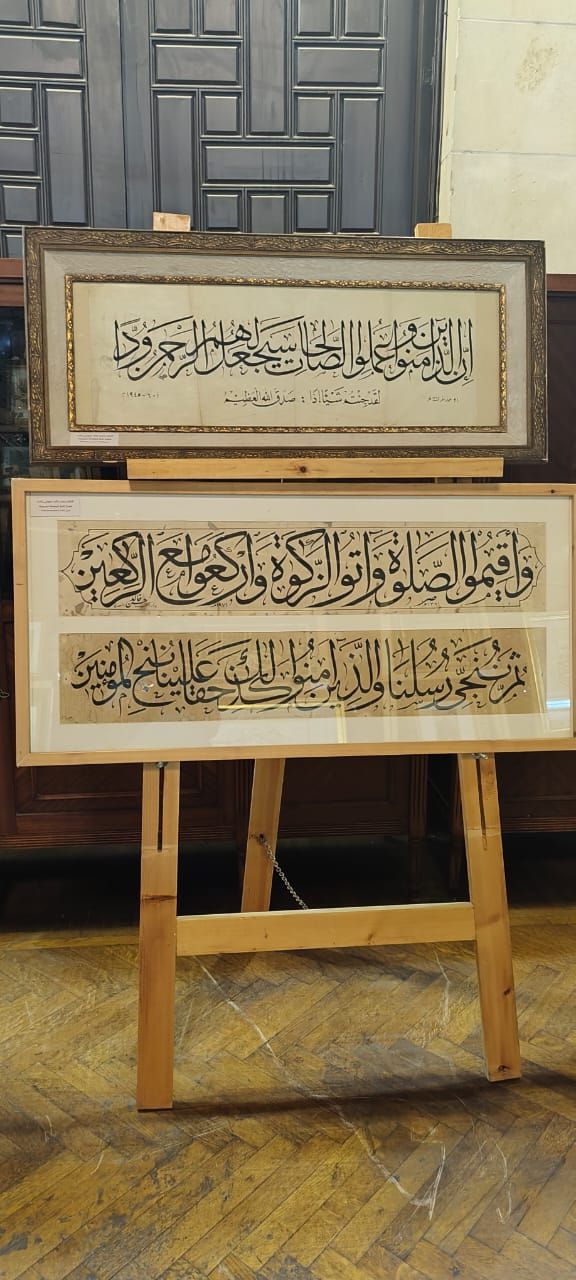 إن الذين آمنوا وعملوا الصالحات سيجعل لهم الرحمن ودا
لقد جئتم شيئا إدا : صدق الله العظيم
وأقيموا الصلوة وآتوا الزكوة واركعوا مع الركعين
ثم ننجي رسلنا والذين آمنوا كذلك حقا علينا ننج المؤمنين